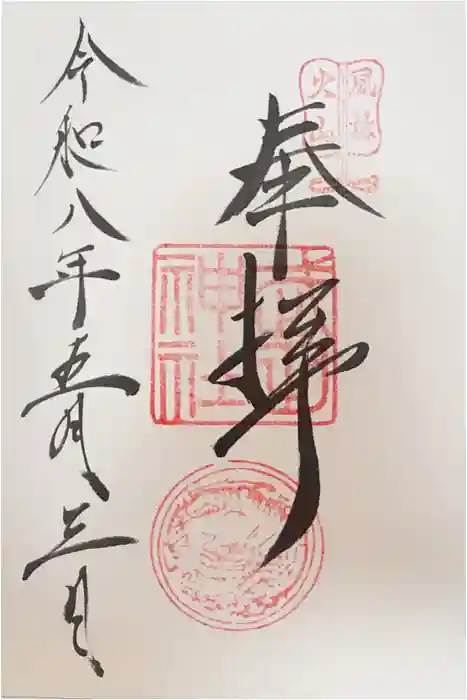 風林
火山
奉拝
武田
神社
令和八年五月三日